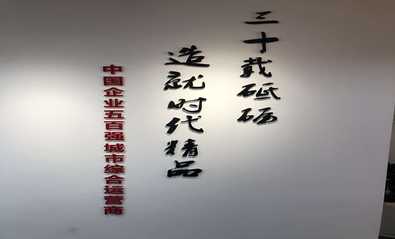 三十载砥砺
造就时代精品
中国企业五百强城市综合运营商